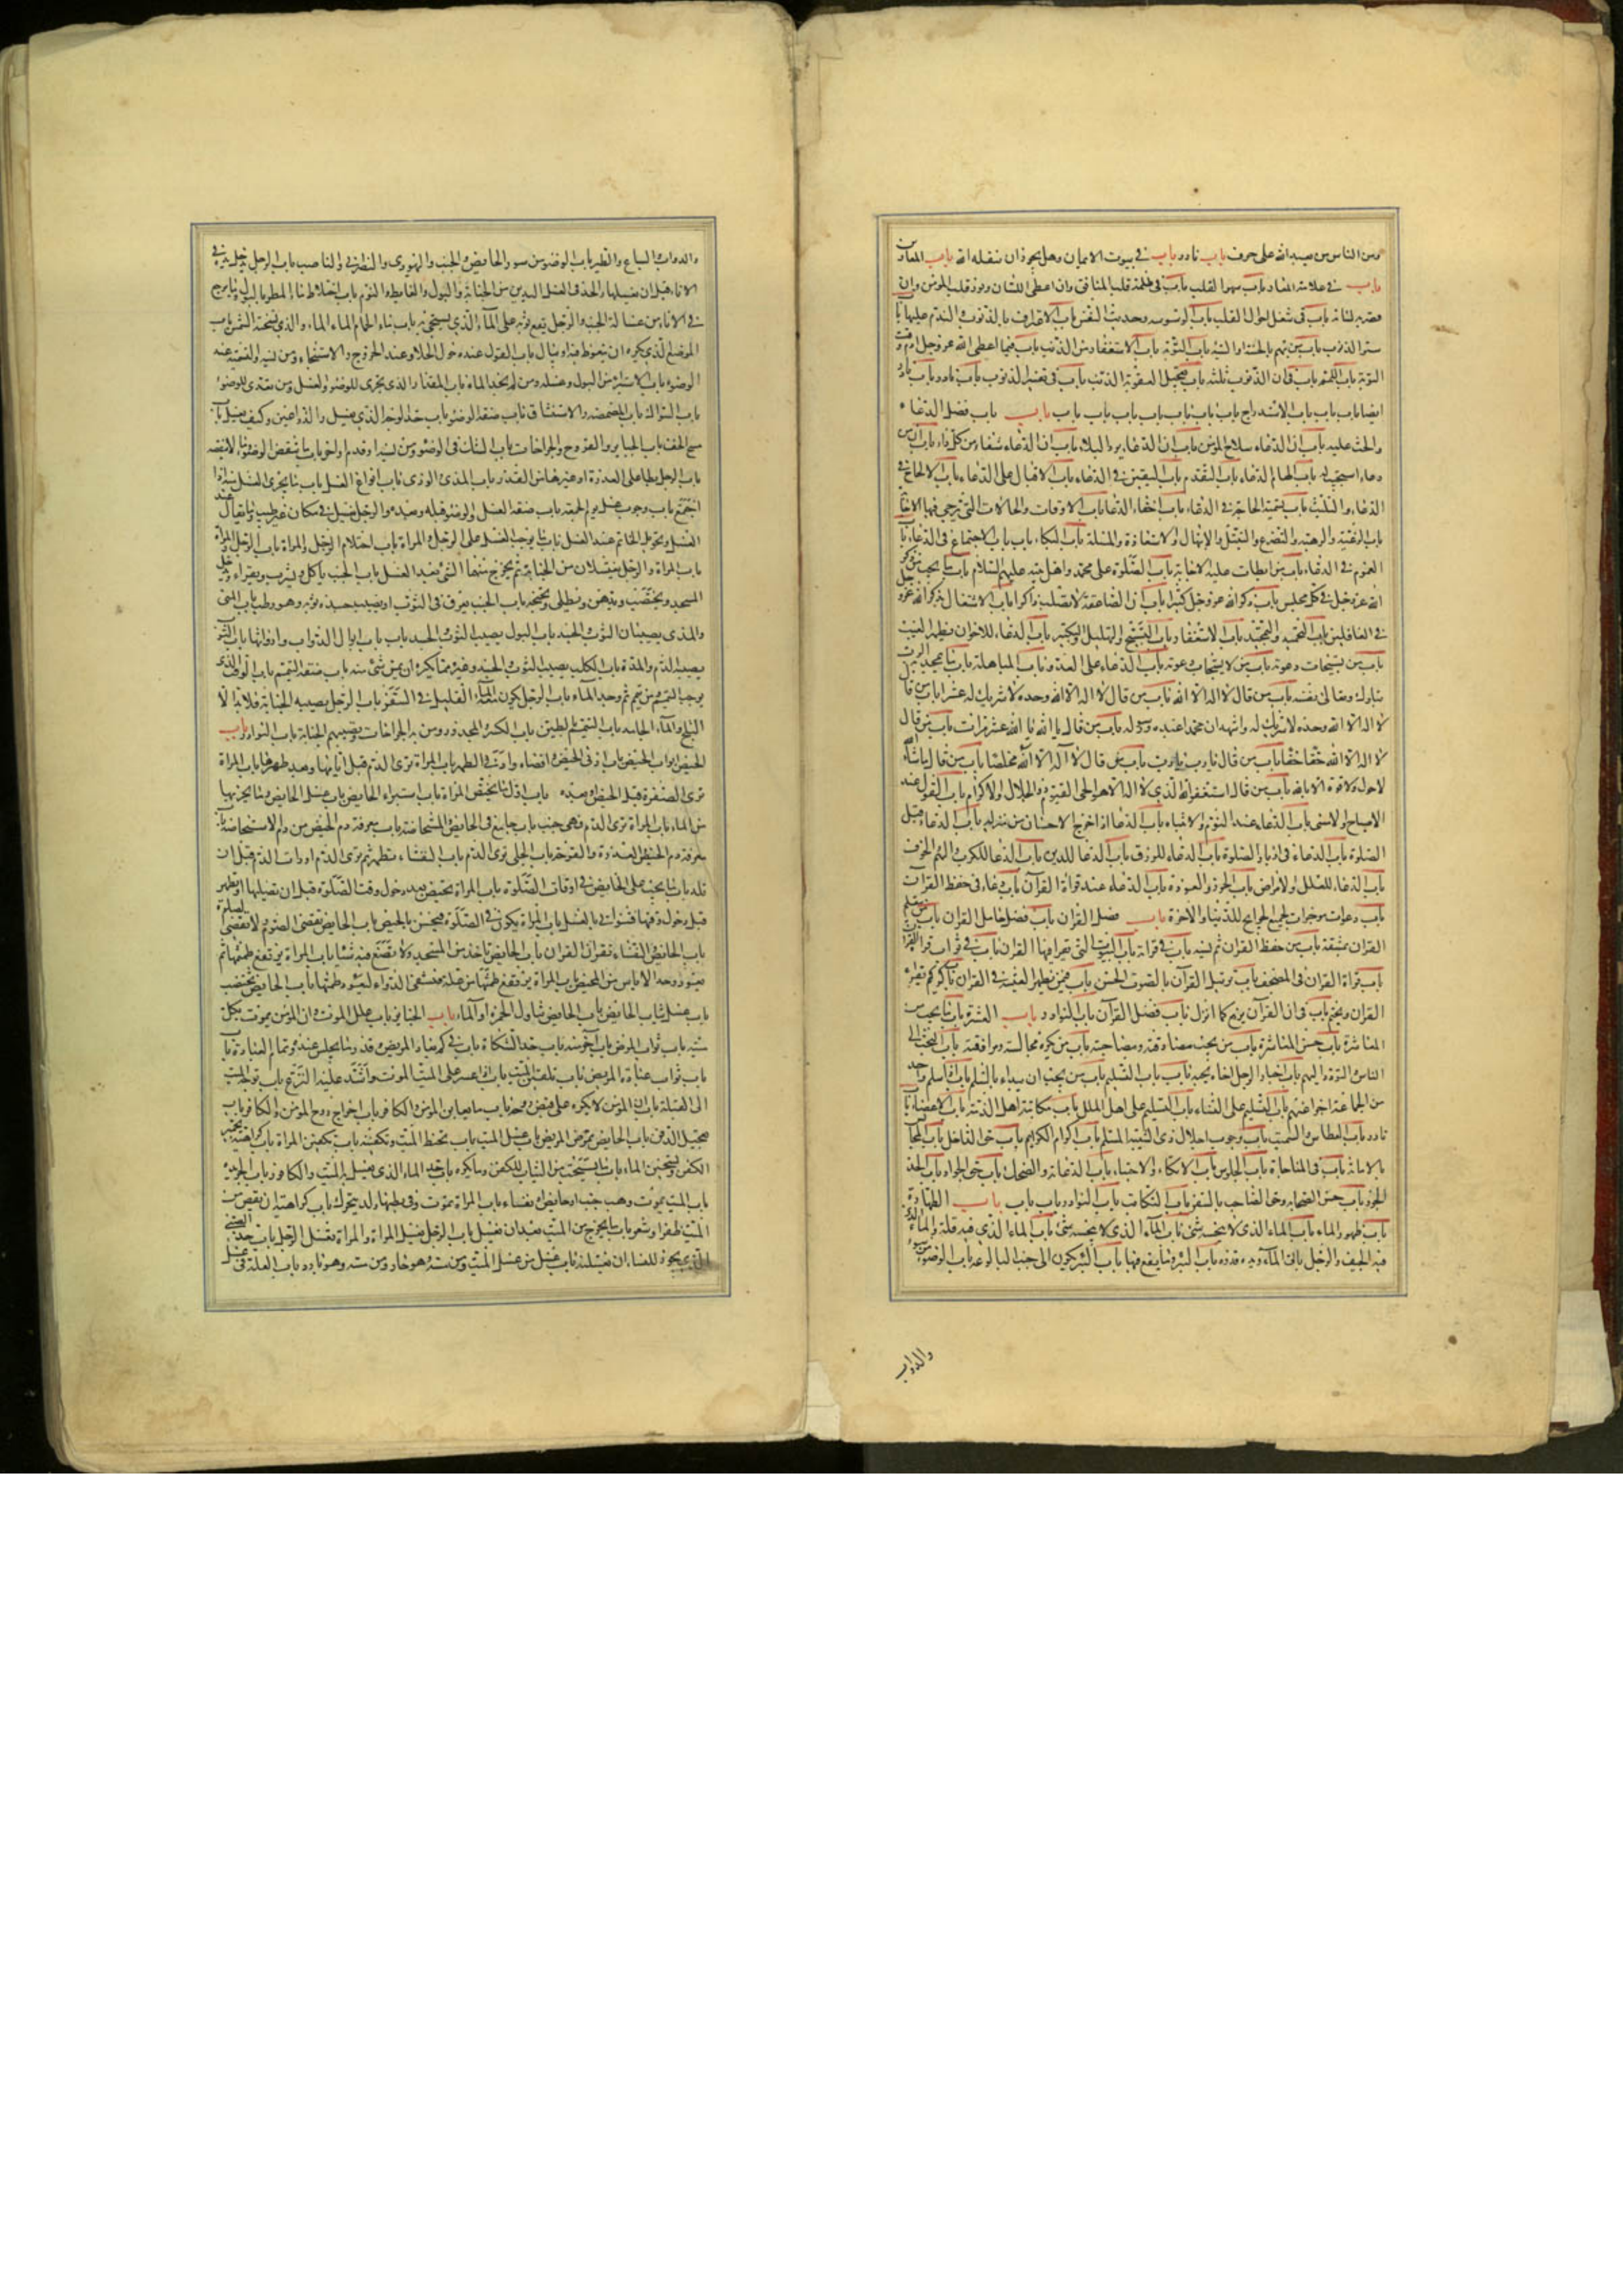 ومن الناس من يعبد الله على حرف باب نادر باب في ثبوت الايمان وهل يجوز ان ينقله الله باب المعارين
باب في علامة المعار باب سهو القلب باب في ظلمة قلب المنافق وان اعطى اللسان ونور قلب المؤمن وان
قصر به لسانه باب في تنقل احوال القلب باب الوسوسة وحديث النفس باب الاعتراف بالذنوب والندم عليها باب
ستر الذنوب باب من يهم بالحسنة او السيئة باب التوبة باب الاستغفار من الذنب باب فيما اعطى الله عز وجل ادم وقت
التوبة باب اللمم باب في ان الذنوب ثلثة باب تعجيل العقوبة الذنب باب في تفسير الذنوب باب نادر باب نادر
ايضا باب باب باب الاستدراج باب باب باب باب باب باب باب باب باب فضل الدعاء
والحث عليه باب ان الدعاء سلاح المؤمن باب ان الدعاء يرد البلاء باب ان الدعاء شفاء من كل داء باب ان من
دعا استجيب له باب الهام الدعاء باب التقدم باب اليقين في الدعاء باب الاقبال على الدعاء باب الالحاح في
الدعاء والتلبث باب تسمية الحاجة في الدعاء باب اخفاء الدعاء باب الاوقات والحالات التي ترجى فيها الاجابة
باب الرغبة والرهبة والتضرع والتبتل والابتهال والاستعاذة والمسئلة باب البكاء باب باب الاجتماع في الدعاء باب
العموم في الدعاء باب من ابطات عليه الاجابة باب الصلوة على محمد واهل بيته عليهم السلام باب ما يجب من ذكر
الله عز وجل في كل مجلس باب ذكر الله عز وجل كثيرا باب ان الصاعقة لا تصيب ذاكرا باب الاشتغال بذكر الله عز وجل
في الغافلين باب التحميد والتمجيد باب الاستغفار باب التسبيح والتهليل والتكبير باب الدعاء للاخوان بظهر الغيب
باب من يستجاب دعوته باب من لا يستجاب دعوته باب الدعاء على العدو باب المباهلة باب ما يمجد به الرب
تبارك وتعالى نفسه باب من قال لا اله الا الله باب من قال لا اله الا الله وحده لا شريك له عشرا باب من قال
لا اله الا الله وحده لا شريك له واشهد ان محمدا عبده ورسوله باب من قال يا الله يا الله عشر مرات باب من قال
لا اله الا الله حقا حقا باب من قال يا رب يا رب باب من قال لا اله الا الله مخلصا باب من قال ما شاء الله
لا حول ولا قوة الا بالله باب من قال استغفر الله الذي لا اله الا هو الحي القيوم ذو الجلال والاكرام باب القول عند
الاصباح والامسى باب الدعاء عند النوم والانتباه باب الدعاء اذا اخرج الانسان من منزله باب الدعاء قبل
الصلوة باب الدعاء في ادبار الصلوة باب الدعاء للرزق باب الدعاء للدين باب الدعا للكرب والهم والخوف
باب الدعاء للعلل والامراض باب الحرز والعوذة باب الدعاء عند قراءة القرآن باب دعاء في حفظ القرآن
باب دعوات موجزات لجميع الحوايج للدنيا والاخرة باب فضل القران باب فضل حامل القران باب من يتعلم
القران بمشقة باب من حفظ القران ثم نسيه باب في قراءته باب البيوت التي يقرا فيها القران باب في ثواب قراءة القران
باب قراءة القران في المصحف باب ترتيل القرآن بالصوت الحسن باب فيمن يظهر الغشية في القران باب في كم يقرا
القران ويختم باب في ان القرآن يرفع كما انزل باب فضل القرآن باب النوادر باب العشرة باب ما يجب من
المعاشرة باب حسن المعاشرة باب من يجب مصادقته ومصاحبته باب من يكره مجالسته ومرافقته باب التحبب الى
الناس والتودد اليهم باب اخبار الرجل اخاه بحبه باب باب التسليم باب من يجب ان يبداء بالسلم باب اذا سلم واحد
من الجماعة اجزاهم باب التسليم على النساء باب التسليم على اهل الملل باب مكاتبة اهل الذمة باب الاغضاء باب
نادر باب العطاس والتسميت باب وجوب اجلال ذي الشيبة المسلم باب اكرام الكريم باب حق الداخل باب المجالس
بالامانة باب في المناجاة باب الجلوس باب الاتكاء والاحتباء باب الدعابة والضحك باب حق الجوار باب حد
الجوار باب حسن الصحابة وحق الصاحب بالسفر باب التكاتب باب النوادر باب باب باب الطهارة
باب طهور الماء باب الماء الذي لا ينجسه شئ باب الماء الذي لا ينجسه شئ باب الماء الذي فيه قلة والماء الذي
فيه الجيف والرجل ياتي الماء ويده قذرة باب البئر وما يقع فيها باب البئر تكون الى جنب البالوعة باب الوضوء من سؤر
والدواب
والدواب والسباع والطير باب الوضوء من سؤر الحايض والجنب واليهودي والنصراني والناصب باب الرجل يدخل يده في
الاناء قبل ان يغسلها والحد في الغسل اليدين من الجنابة والبول والغايط والنوم باب اختلاط ماء المطر بالبول وما يرجع
في الاناء من غسالة الجنب والرجل يقع ثوبه على الماء الذي يستنجى به باب ماء الحمام والماء الذي تسخنه الشمس باب
الموضع الذي يكره ان يتغوط فيه او يبال باب القول عند دخول الخلاء وعند الخروج والاستنجاء ومن نسيه والتسمية عند
الوضوء باب الاستبراء من البول وغسله ومن لم يجد الماء باب المقدار الذي يجزي للوضوء والغسل ومن تعدى للوضوء
باب السواك باب المضمضة والاستنشاق باب صفة الوضوء باب حد الوجه الذي يغسل والذراعين وكيف يغسل باب
مسح الخف باب الجباير والقروح والجراحات باب الشك في الوضوء ومن نسيه او قدم او اخر باب ما ينقض الوضوء وما لا ينقضه
باب الرجل يطا على العذرة او غيرها من القذر باب المذي والودي باب انواع الغسل باب ما يجزي الغسل منه اذا
اجتمع باب وجوب غسل يوم الجمعة باب صفة الغسل والوضوء قبله وبعده والرجل يغتسل في مكان غير طيب وما يقال عند
الغسل وتحويل الخاتم عند الغسل باب ما يوجب الغسل على الرجل والمراة باب احتلام الرجل والمراة باب الرجل والمراة
باب المراة والرجل يغتسلان من الجنابة ثم يخرج منهما الشئ بعد الغسل باب الجنب ياكل ويشرب ويقرا ويدخل
المسجد ويختضب ويدهن ويطلي ويحتجم باب الجنب يعرق في الثوب او يصيب جسده ثوبه وهو رطب باب المني
والمذي يصيبان الثوب والجسد باب البول يصيب الثوب والجسد باب باب ابوال الدواب وارواثها باب الثوب
يصيبه الدم والمدة باب الكلب يصيب الثوب والجسد وغيره مما يكره ان يمس شئ منه باب صفة التيمم باب الوقت الذي
يوجب التيمم ومن تيمم ثم وجد الماء باب الرجل يكون معه الماء القليل في السفر باب الرجل يصيبه الجنابة فلا يجد الا
الثلج والماء الجامد باب التيمم بالطين باب الكسير والمجدور ومن به الجراحات وتصيبهم الجنابة باب النوادر باب
الحيض ابواب الحيض باب ادنى الحيض واقصاه وادنى الطهر باب المراة ترى الدم قبل ايامها وبعد طهرها باب المراة
ترى الصفرة قبل الحيض وبعده باب اول ما تحيض المراة باب استبراء الحايض باب غسل الحايض وما يجزيها
من الماء باب المراة ترى الدم وهي جنب باب جامع في الحايض والمستحاضة باب معرفة دم الحيض من دم الاستحاضة باب
معرفة دم الحيض والعذرة والقرحة باب الحبلى ترى الدم باب النفساء تطهر ثم ترى الدم او رات الدم قبل ان
تلد باب ما يجب على الحايض في اوقات الصلوة باب المراة تحيض بعد دخول وقت الصلوة قبل ان تصليها او تطهر
قبل دخول وقتها فتتوانى بالغسل باب المراة تكون في الصلوة فتحس بالحيض باب الحايض تقضي الصوم ولا تقضي الصلوة
باب الحايض والنفساء تقران القران باب الحايض تاخذ من المسجد ولا تضع فيه شيئا باب المراة يرتفع طمثها ثم
يعود وحد الاياس من المحيض باب المراة يرتفع طمثها من علة فتسقى الدواء ليعود طمثها باب الحايض تختضب
باب غسل ثياب الحايض باب الحايض تناول الخمرة او الماء باب الجنايز باب علل الموت وان المؤمن يموت بكل
ميتة باب ثواب المرض باب اخر منه باب حد الشكاة باب في كم يعاد المريض وقدر ما يجلس عنده وتمام العيادة باب
باب ثواب عيادة المريض باب تلقين الميت باب اذا عسر على الميت الموت واشتد عليه النزع باب توجيه الميت
الى القبلة باب ان المؤمن لا يكره على قبض روحه باب ما يعاين المؤمن والكافر باب اخراج روح المؤمن والكافر باب
تعجيل الدفن باب الحايض تمرض المريض باب غسل الميت باب تحنيط الميت وتكفينه باب تكفين المراة باب كراهية تجمير
الكفن وتسخين الماء باب ما يستحب من الثياب للكفن وما يكره باب حد الماء الذي يغسل به الميت والكافور باب الجريدة
باب الميت يموت وهو جنب او حايض او نفساء باب المراة تموت وفي بطنها ولد يتحرك باب كراهية ان يقص من
الميت ظفر او شعر باب ما يخرج من الميت بعد ان يغسل باب الرجل يغسل المراة والمراة تغسل الرجل باب حد الصبي
الذي يجوز للنساء ان يغسلنه باب غسل من غسل الميت ومن مسه وهو حار ومن مسه وهو بارد باب العلة في غسل